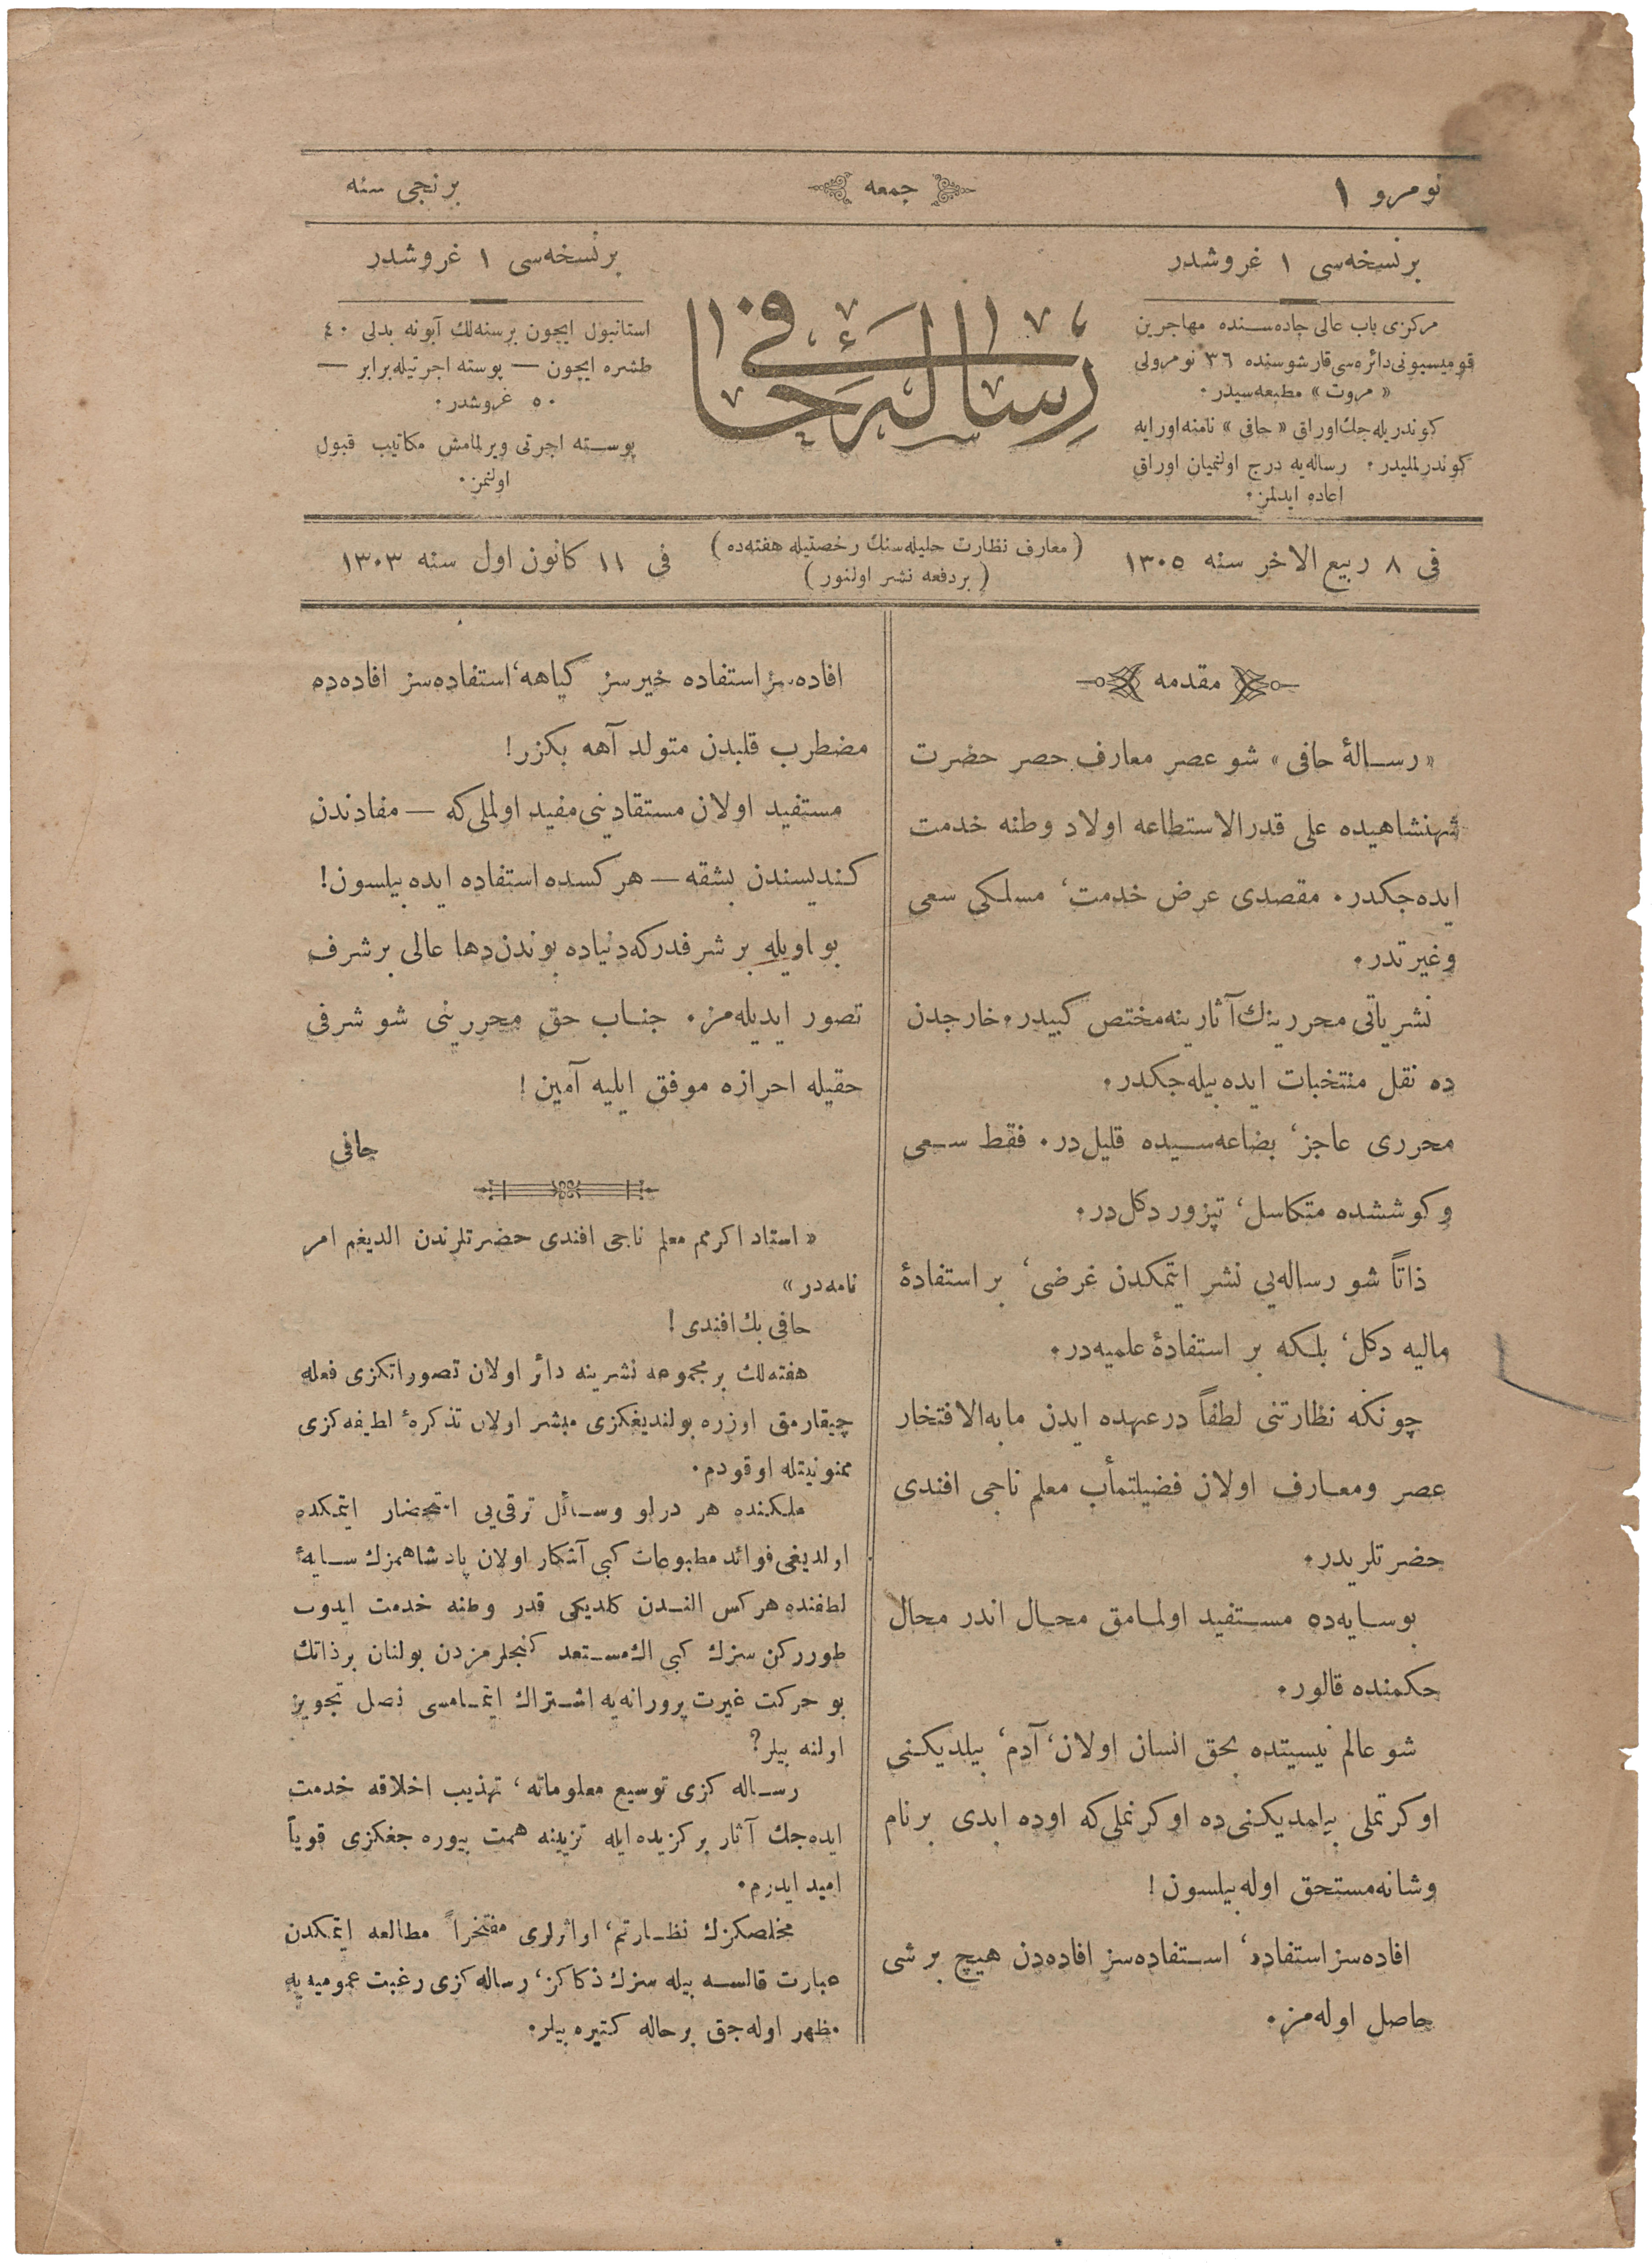 نومرو ١
جمعه
برنجی سنه
برنسخه‌سی ١ غروشدر
مركزی باب عالی جاده‌سنده مهاجرین
قومیسیونی دائره‌سی قارشوسنده ٣٦ نومرولی
« مروت » مطبعه‌سیدر.
كوندریله‌جك اوراق « حافی » نامنه اورایه
كوندرلملیدر. رساله‌یه درج اولنمیان اوراق
اعاده ایدلمز.
رسالهٔ حافی
برنسخه‌سی ١ غروشدر
استانبول ایچون برسنه‌لك آبونه بدلی ٤٠
طشره ایچون — پوسته اجرتیله برابر —
٥٠ غروشدر.
پوسته اجرتی ویرلمامش مكاتیب قبول
اولنمز.
فی ٨ ربیع الاخر سنه ١٣٠٥
( معارف نظارت جلیله‌سنك رخصتیله هفته‌ده )
( بردفعه نشر اولنور )
فی ١١ كانون اول سنه ١٣٠٣
مقدمه
« رسالهٔ حافی » شو عصر معارف حصر حضرت
شهنشاهیده علی قدر الاستطاعه اولاد وطنه خدمت
ایده‌جكدر. مقصدی عرض خدمت، مسلكی سعی
وغیرتدر.
نشریاتی محررینك آثارینه مختص كبیدر. خارجدن
ده نقل منتخبات ایده بیله‌جكدر.
محرری عاجز، بضاعه‌سیده قلیل‌در. فقط سعی
وكوششده متكاسل، تپزور دكل‌در.
ذاتاً شو رساله‌یی نشر ایتمكدن غرضی، بر استفادهٔ
مالیه دكل، بلكه بر استفادهٔ علمیه‌در.
چونكه نظارتنی لطفاً درعهده ایدن مابه‌الافتخار
عصر ومعارف اولان فضیلتمأب معلم ناجی افندی
حضرتلریدر.
بوسایه‌ده مستفید اولمامق محال اندر محال
حكمنده قالور.
شو عالم نیسیتده بحق انسان اولان، آدم، بیلدیكنی
اوكرتملی بیلمدیكنی‌ده اوكرنملی‌كه اوده ابدی برنام
وشانه مستحق اوله بیلسون!
افاده‌سز استفاده، استفاده‌سز افاده‌دن هیچ برشی
حاصل اوله‌مز.
افاده‌سز استفاده خیرسز كیاهه، استفاده‌سز افاده‌ده
مضطرب قلبدن متولد آهه بكزر!
مستفید اولان مستقادینی مفید اولملی‌كه — مفادندن
كندیسندن بشقه — هركسده استفاده ایده بیلسون!
بو اویله بر شرفدركه دنیاده بوندن دها عالی برشرف
تصور ایدیله‌مز. جناب حق محررینی شو شرفی
حقیله احرازه موفق ایلیه آمین!
حافی
« استاد اكرمم معلم ناجی افندی حضرتلرندن الدیغم امر
نامه‌در »
حافی بك افندی!
هفته‌لك بر مجموعه نشرینه دائر اولان تصوراتكزی فعله
چیقارمق اوزره بولندیغكزی مبشر اولان تذكرهٔ لطیفه‌كزی
ممنونیتله اوقودم.
ملكنده هر درلو وسائل ترقی‌یی استحضار ایتمكده
اولدیغی فوائد مطبوعات كبی آشكار اولان پادشاهمزك سایهٔ
لطفنده هركس الندن كلدیكی قدر وطنه خدمت ایدوب
طورركن سزك كبی الك مستعد كنجلرمزدن بولنان برذاتك
بو حركت غیرت پرورانه‌یه اشتراك ایتمامسی نصل تجویز
اولنه بیلر؟
رساله‌كزی توسیع معلوماته، تهذیب اخلاقه خدمت
ایده‌جك آثار بركزیده ایله تزیینه همت بیوره جغكزی قویاً
امید ایدرم.
مخلصكزك نظارتم، او اثرلری مفتخراً مطالعه ایتمكدن
عبارت قالسه بیله سزك ذكاكز، رساله‌كزی رغبت عمومیه‌یه
مظهر اوله‌جق برحاله كتیره بیلر.